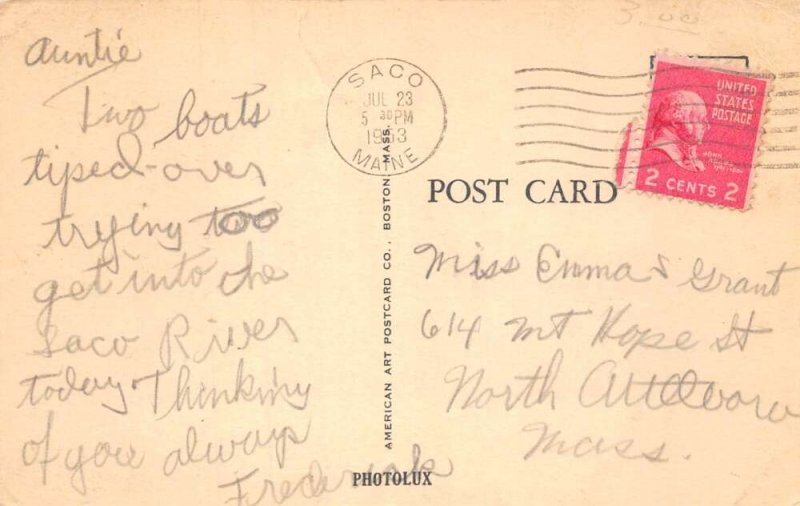 3.00
Auntie
Two boats
tiped-over
trying too
get into the
Saco River
today. Thinking
of you always
Frederick
SACO
JUL 23
5 30 PM
1953
MAINE
UNITED
STATES
POSTAGE
JOHN ADAMS
2 CENTS 2
POST CARD
Miss Emma S Grant
614 Mt Hope St
North Attleboro
Mass.
AMERICAN ART POSTCARD CO., BOSTON, MASS.
PHOTOLUX